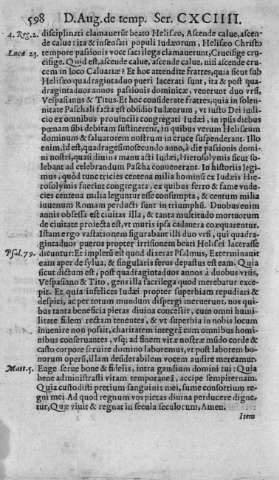 598 D. Aug. de temp. Ser. CXCIIII.
4. Reg. 2. disciplinati clamauerūt beato Heliseo, Ascende calue, ascen-
de calue: ita & insensati populi Iudæorum, Heliseo Christo
Lucæ 23. tempore passionis voce sacrilega clamauerunt, Crucifige cru-
cifige. Quid est, ascende calue, ascende calue, nisi ascende cru-
cem in loco Caluariæ? Et hoc attendite fratres, quia sicut sub
Heliseo quadragintaduo pueri lacerati sunt, ita & post qua-
dragintaduos annos passionis dominicæ, venerunt duo vrsi,
Vespasianus & Titus. Et hoc considerate fratres, quia in solen-
nitate Paschali facta est obsidio Iudæorum, vt iusto Dei iudi-
cio ex omnibus prouinciis congregati Iudæi, in ipsis diebus
pœnam sibi debitam sustinerent, in quibus verum Heliseum
dominum & saluatorem nostrum in cruce suspenderant. Illo
enim, id est, quadragesimosecundo anno, die passionis domi-
ni nostri, quasi diuina manu acti Iudæi, Hierosolymis sicut so-
lebant ad celebrandum Pascha conuenerant. In historiis legi-
mus, quòd tunc tricies centena milia hominū ex Iudæis Hie-
rosolymis fuerint congregata, ex quibus ferro & fame vnde-
cies centena milia leguntur esse consumpta, & centum milia
iuuenum Romam perducti sunt in triumphū. Duobus enim
annis obsessa est ciuitas illa, & tanta multitudo mortuorum
de ciuitate proiecta est, vt muris ipsa cadauera coæquarentur.
Istam ergo vastationem figurabant illi duo vrsi, qui quadra-
gintaduos pueros propter irrisionem beati Helisei lacerasse
Psal. 79. dicuntur: Et impletū est quod dixerat Psalmus, Exterminauit
eam aper de sylua, & singularis ferus depastus est eam. Quia
sicut dictum est, post quadragintaduos annos à duobus vrsis,
Vespasiano & Tito, gens illa sacrilega quod merebatur exce-
pit. Ex quia infelices Iudæi propter superbiam repudiati &
despecti, ac per totum mundum dispergi meruerunt, nos qui-
bus tanta beneficia pietas diuina concessit, cum omni humili-
tate fidem rectam tenentes, & vt superbia in nobis locum
inuenire non possit, charitatem integrā cum omnibus homi-
nibus conseruantes, vsq; ad finem vitæ nostræ mūdo corde &
casto corpore seruire domino laboremus, vt post laborem bo-
norum operū, illam desiderabilem vocem audire mereamur,
Matt. 5. Euge serue bone & fidelis, intra gaudium domini tui: Quia
bene administrasti vitam temporaneā, accipe sempiternam.
Quia custodisti pretium sanguinis mei, sume consortium re-
gni mei. Ad quod regnum vos pietas diuina perducere digne-
tur, Quæ viuit & regnat in secula seculorum, Amen.
Item